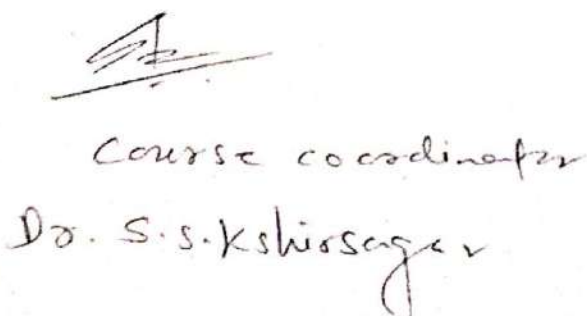 Course coordinator
Dr. S.S. Kshirsagar